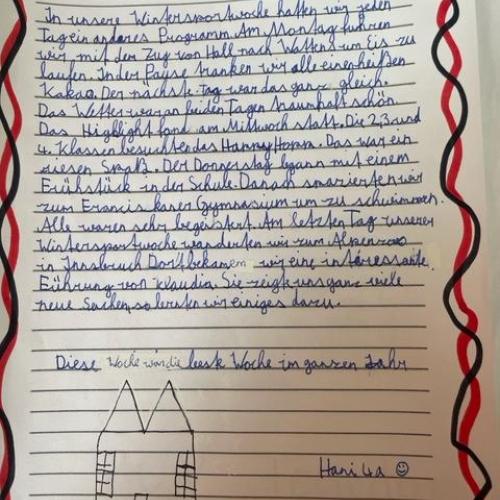 In unsere Wintersportwoche hatten wir jeden
Tag ein anderes Programm. Am Montag fuhren
wir mit dem Zug von Hall nach Wattens um Eis zu
laufen. In der Pause tranken wir alle einen heißen
Kakao. Der nächste Tag war das ganz gleich.
Das Wetter war an beiden Tagen traumhaft schön.
Das Highlight fand am Mittwoch statt. Die 2,3 und
4. Klassen besuchten das Hanny Honn. Das war ein
riesen Spaß. Der Donnerstag begann mit einem
Frühstück in der Schule. Danach spazierten wir
zum Franciskaner Gymnasium um zu schwimmen.
Alle waren sehr begeistert. Am letzten Tag unserer
Wintersportwoche wanderten wir zum Alpenzoo
in Innsbruck Dort bekamen wir eine interessante
Führung von Klaudia. Sie zeigt uns ganz viele
neue Sachen, so lernten wir einiges dazu.
Diese Woche war die beste Woche im ganzen Jahr
Hani 4a ☺